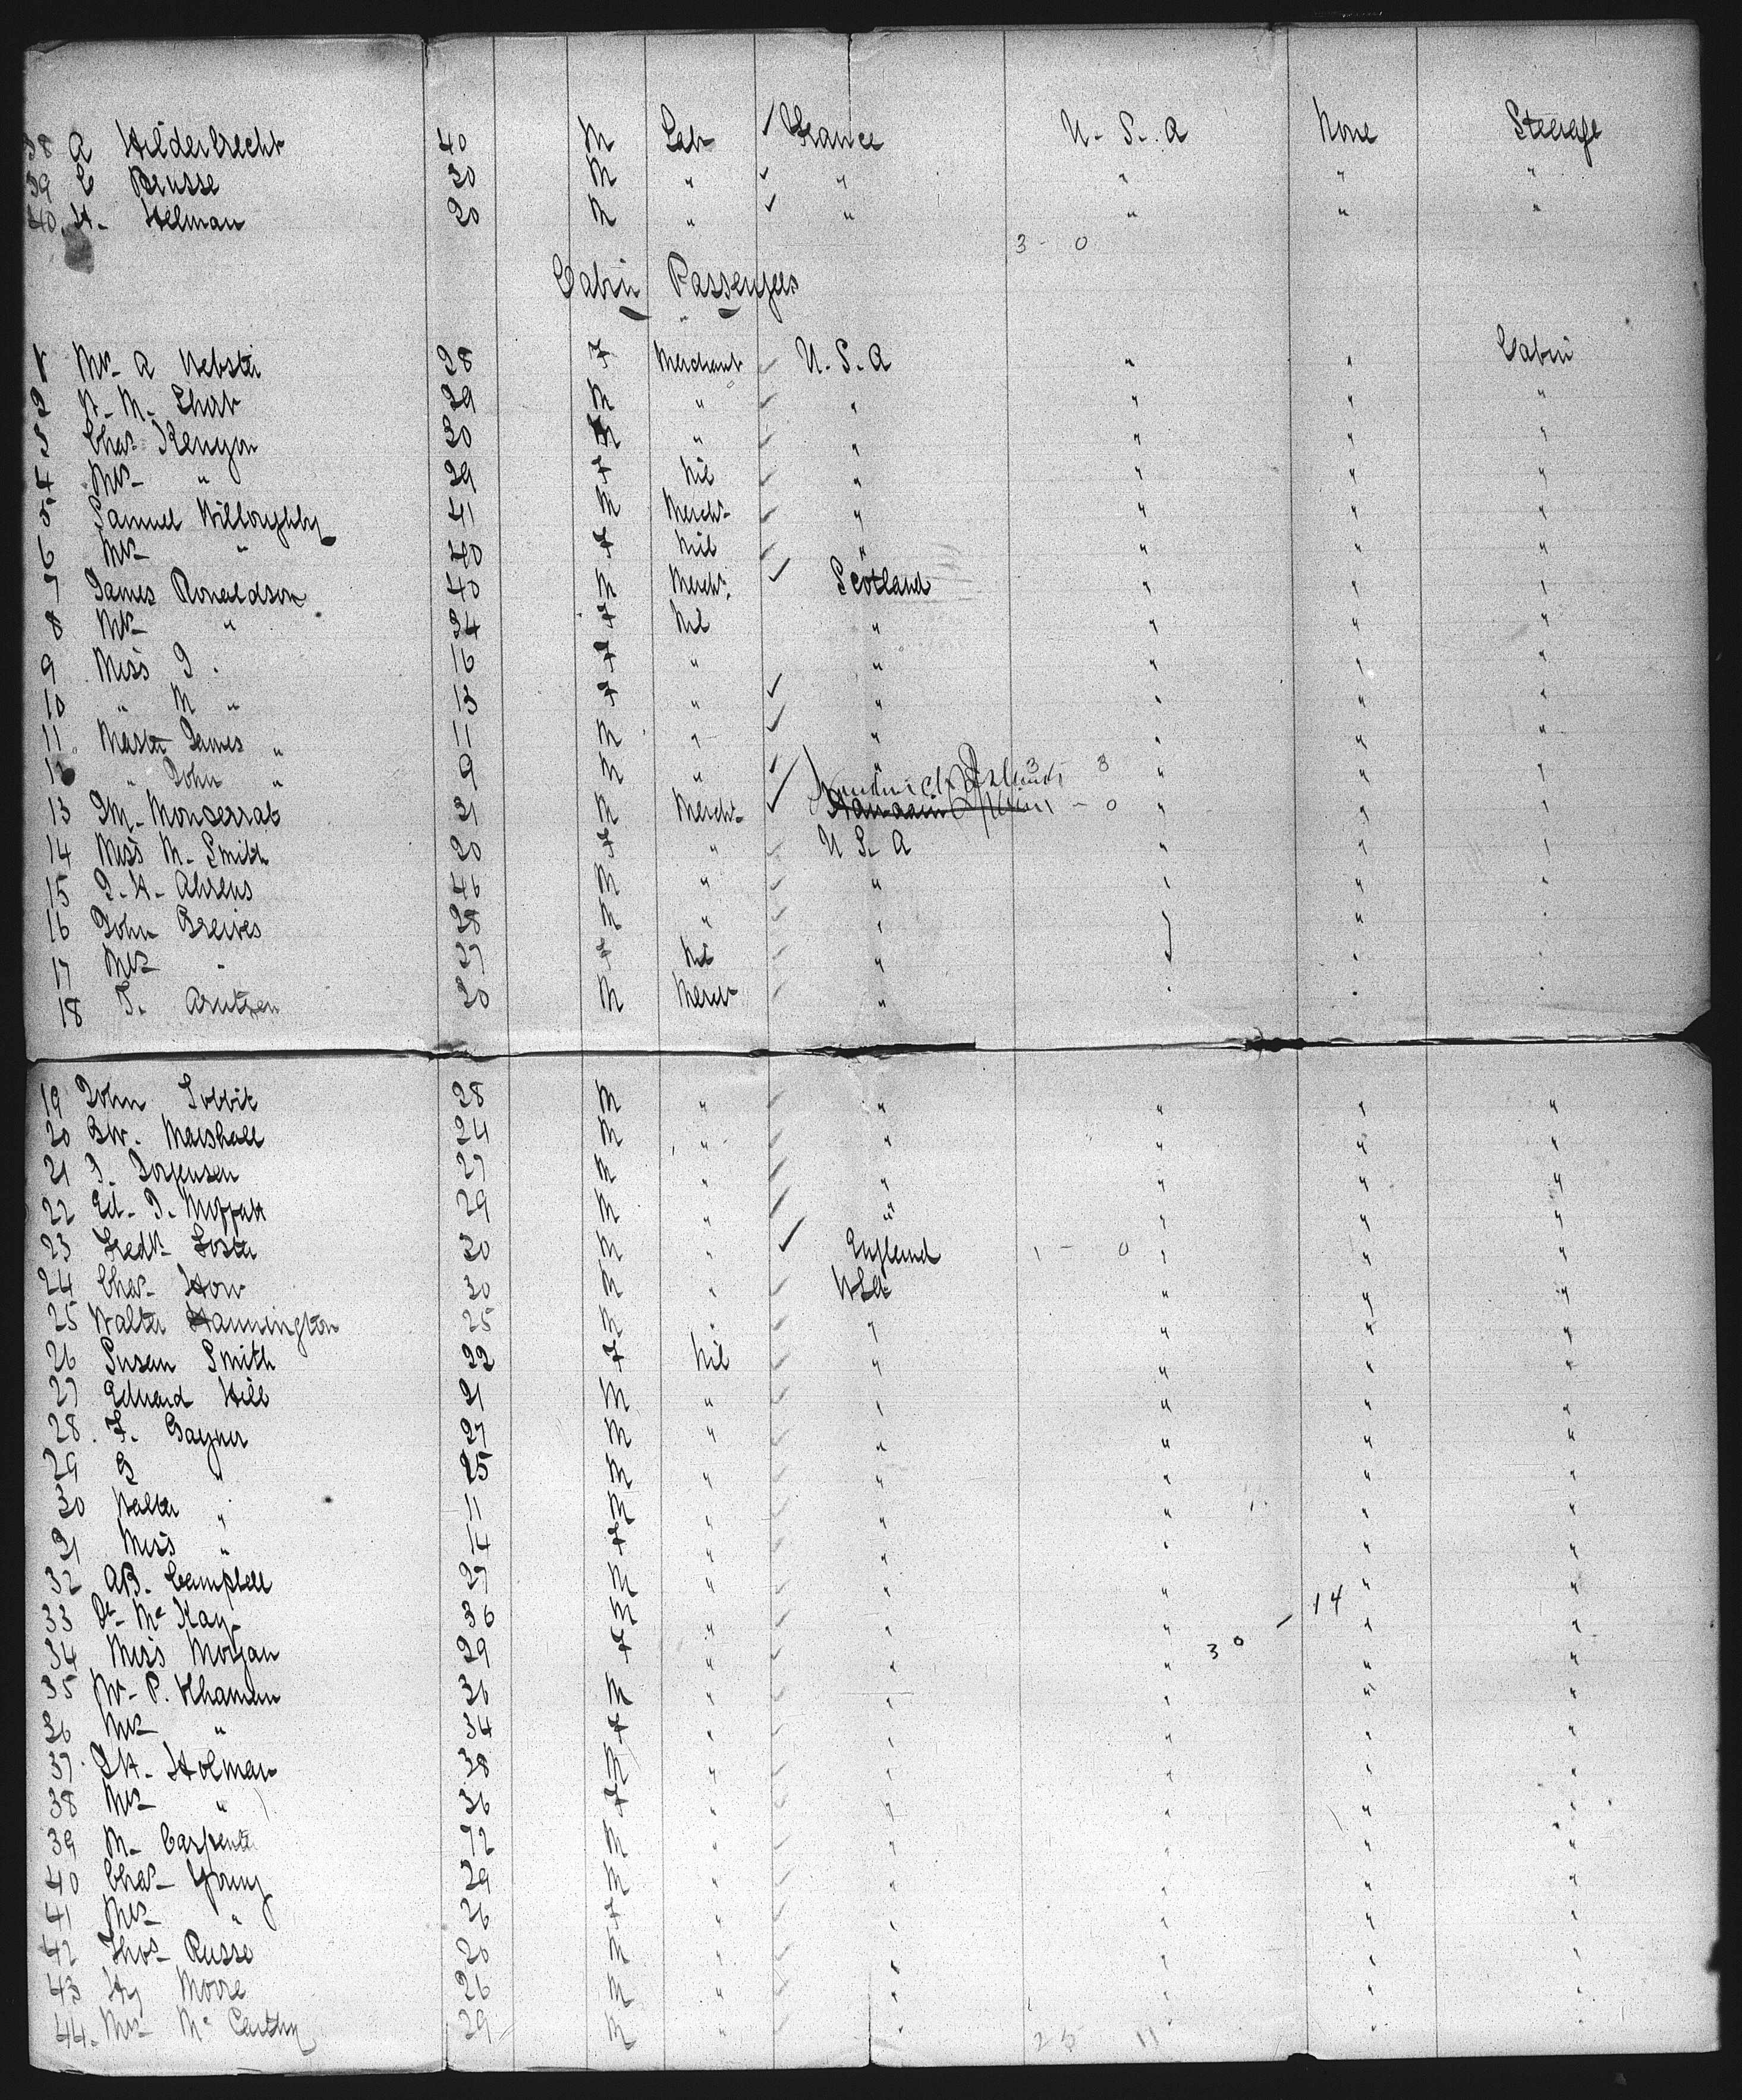 38 A Hilderbrecht 40 M Lab ✓ France U-S-A None Steerage
39 C Brusse 30 M " ✓ " " " "
40. H- Helman 20 M " ✓ " " " "
3 - 0
Cabin Passengers
1 Mrs A Webster 28 F Merchant ✓ U.S.A " " Cabin
2 M- 29 M " ✓ " " " "
3 Chas Kenyon 30 M " ✓ " " " "
4 Mrs " 29 F Nil ✓ " " " "
5 Samuel Willoughby 41 M Mercht ✓ " " " "
6 Mrs " 40 F Nil ✓ " " " "
7 James Ronaldson 40 M Mercht ✓ Scotland " " "
8 Mrs " 34 F Nil " " " "
9 Miss J " 16 F " " " " "
10 " M " 13 F " ✓ " " " "
11 Master James " 11 M " ✓ " " " "
12 " John " 9 M " ✓ " 3 3 " " "
13 M- Monserrat 31 M Mercht ✓ Sandwich Islands - 0 " " "
14 Miss M- Smith 20 F " ✓ U S- A " " "
15 J-H- Ahrens 46 M " ✓ " " " "
16 John Breives 38 M " ✓ " " " "
17 Mrs " 37 F Nil ✓ " " " "
18 J. Arntzen 30 M Mercht ✓ " " " "
19 John 28 M " ✓ " " " "
20 BW. Marshall 24 M " ✓ " " " "
21 J. Jorgensen 27 M " ✓ " " " "
22 Ed- J- Moffatt 29 M " ✓ " " " "
23 Fredk Foster 30 M " ✓ England 1 - 0 " " "
24 Chas- How 30 M " ✓ USA " " "
25 Walter Hannington 25 M " ✓ " " " "
26 Susan Smith 22 F Nil ✓ " " " "
27 Edward Hill 21 M " ✓ " " " "
28. F. Gayner 27 M " ✓ " " " "
29 G " 25 M " ✓ " " " "
30 Walter " 11 M " ✓ " " " "
31 Miss " 4 F " ✓ " " " "
32 AB. Campbell 29 M " ✓ " " " "
33 Dr- Mc Kay- 36 M " ✓ " " - 14 " "
34 Miss Morgan 29 F " ✓ " " 3 0 " "
35 W- P. Khamen 36 M " ✓ " " " "
36 Mrs " 34 F " ✓ " " " "
37 JH- Holman 38 M " ✓ " " " "
38 Mrs " 36 F " ✓ " " " "
39 M- Carpenter 72 M " ✓ " " " "
40 Chas- Young 29 M " ✓ " " " "
41 Mrs " 26 F " ✓ " " " "
42 Thos- Russe 20 M " ✓ " " " "
43 Hy Moore 26 M " ✓ " " " "
44- Mr Mc Carthy 29 M " ✓ " " " "
25 11